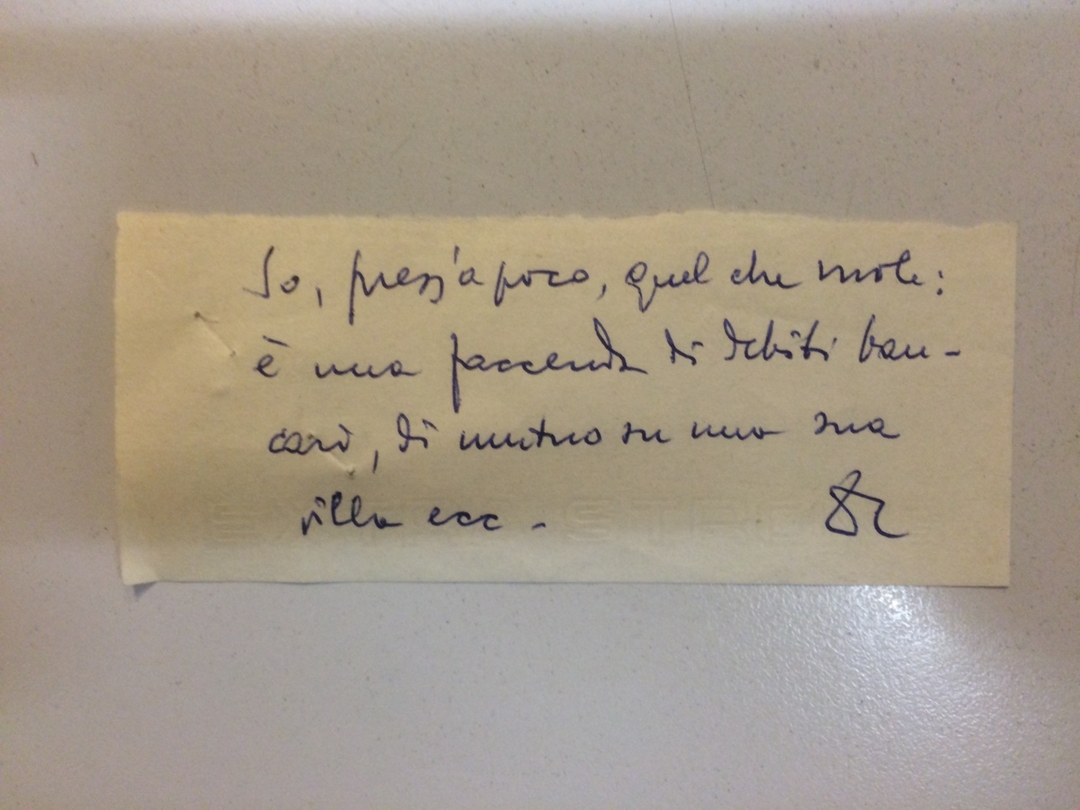 So, press'a poco, quel che vuole:
è una faccenda di debiti ban-
cari, di mutuo su una sua
villa ecc.